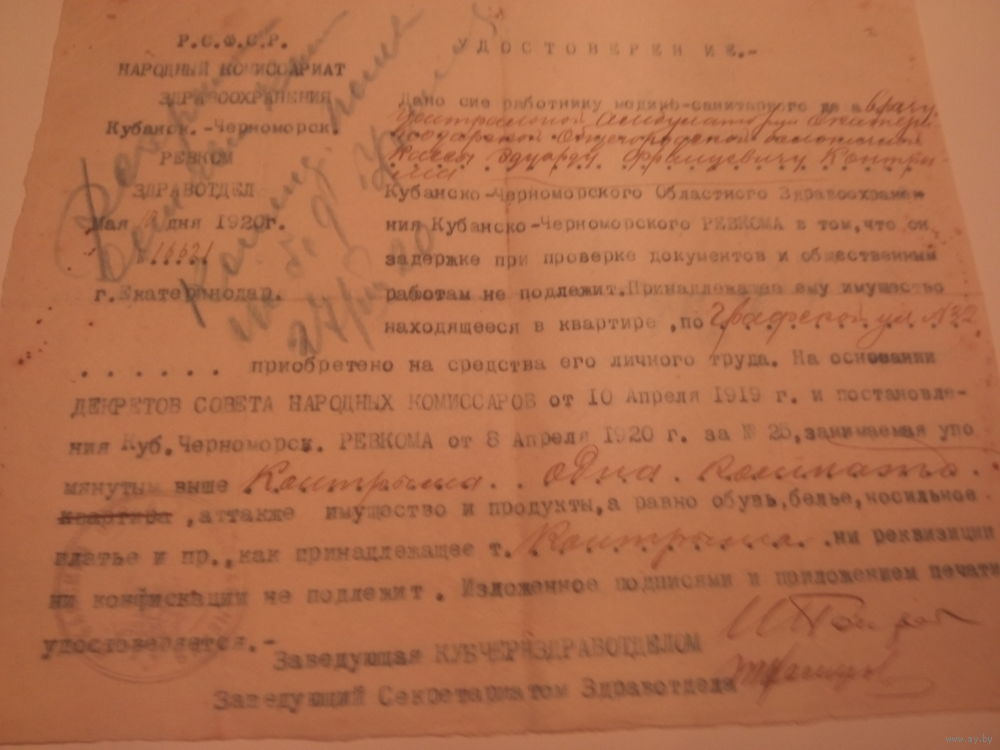 Р.С.Ф.С.Р.
НАРОДНЫЙ КОМИССАРИАТ
ЗДРАВООХРАНЕНИЯ
Кубанск.-Черноморск.
РЕВКОМ
ЗДРАВОТДЕЛ
Мая дня 1920г.
г.Екатеринодар.
УДОСТОВЕРЕНИЕ.-
Дано сие работнику медико-санитарного врачу
Центральной Амбулатории Екатери
нодарской Общегородской больничной
Кассы Эдуарду Францевичу Контры
Кубанско-Черноморского Областного Здравоохране-
ния Кубанско-Черноморского РЕВКОМА в том,что он
задержке при проверке документов и общественным
работам не подлежит.Принадлежащее ему имущество
находящееся в квартире ,по Графской ул №32
. . . . . . приобретено на средства его личного труда. На основании
ДЕКРЕТОВ СОВЕТА НАРОДНЫХ КОМИССАРОВ от 10 Апреля 1919 г. и постановле-
ния Куб.Черноморск. РЕВКОМА от 8 Апреля 1920 г. за № 25,занимаемая упо
мянутым выше Контрыма . . одна . комната .
квартира ,аттакже имущество и продукты,а равно обувь,белье,носильное
платье и пр.,как принадлежащее т. Контрыма . ни реквизиции
ни конфискации не подлежит. Изложенное подписями и приложением печати
удостоверяется.-
Заведующая КУБЧЕРНЗДРАВОТДЕЛОМ
Заведующий Секретариатом Здравотдела
www.ay.by